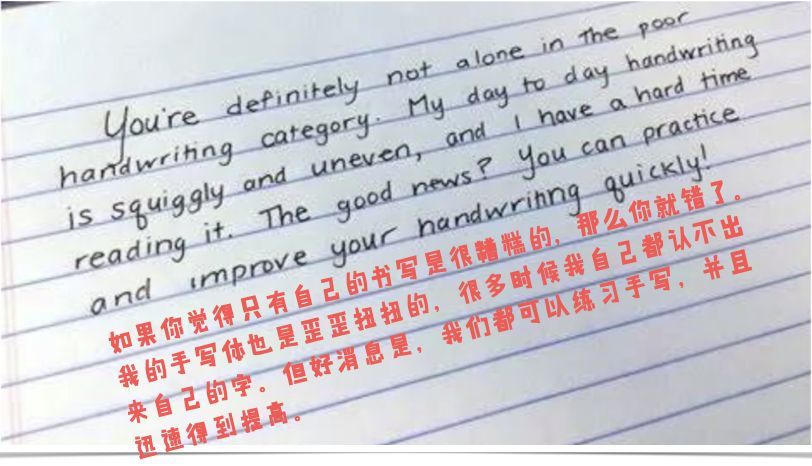 You're definitely not alone in the poor
handwriting category. My day to day handwriting
is squiggly and uneven, and I have a hard time
reading it. The good news? You can practice
and improve your handwriting quickly!
如果你觉得只有自己的书写是很糟糕的，那么你就错了。
我的手写体也是歪歪扭扭的，很多时候我自己都认不出
来自己的字。但好消息是，我们都可以练习手写，并且
迅速得到提高。